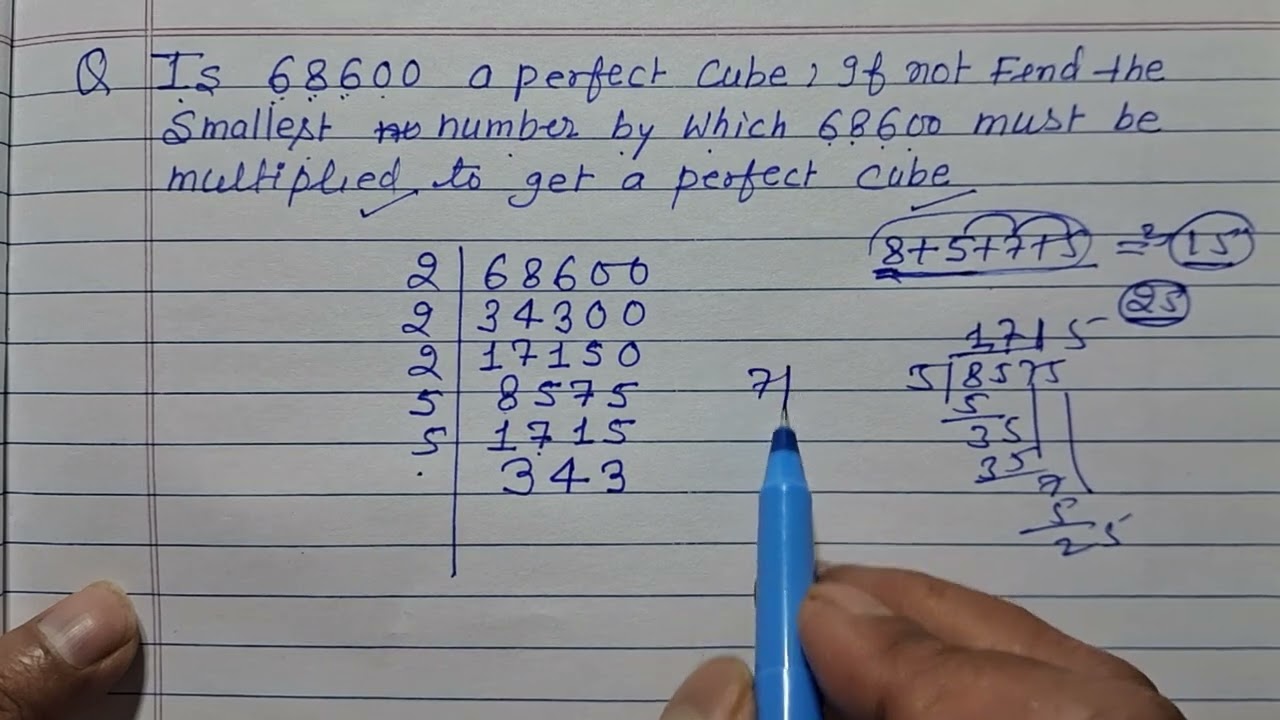 Q Is 68600 a perfect cube, If not Fend the
Smallest number by which 68600 must be
multiplied to get a perfect cube
8+5+7+5 = 15
25
2 | 68600
2 | 34300
2 | 17150
5 | 8575
5 | 1715
343
7|
1715
5 | 8575
5
35
35
7
5
25